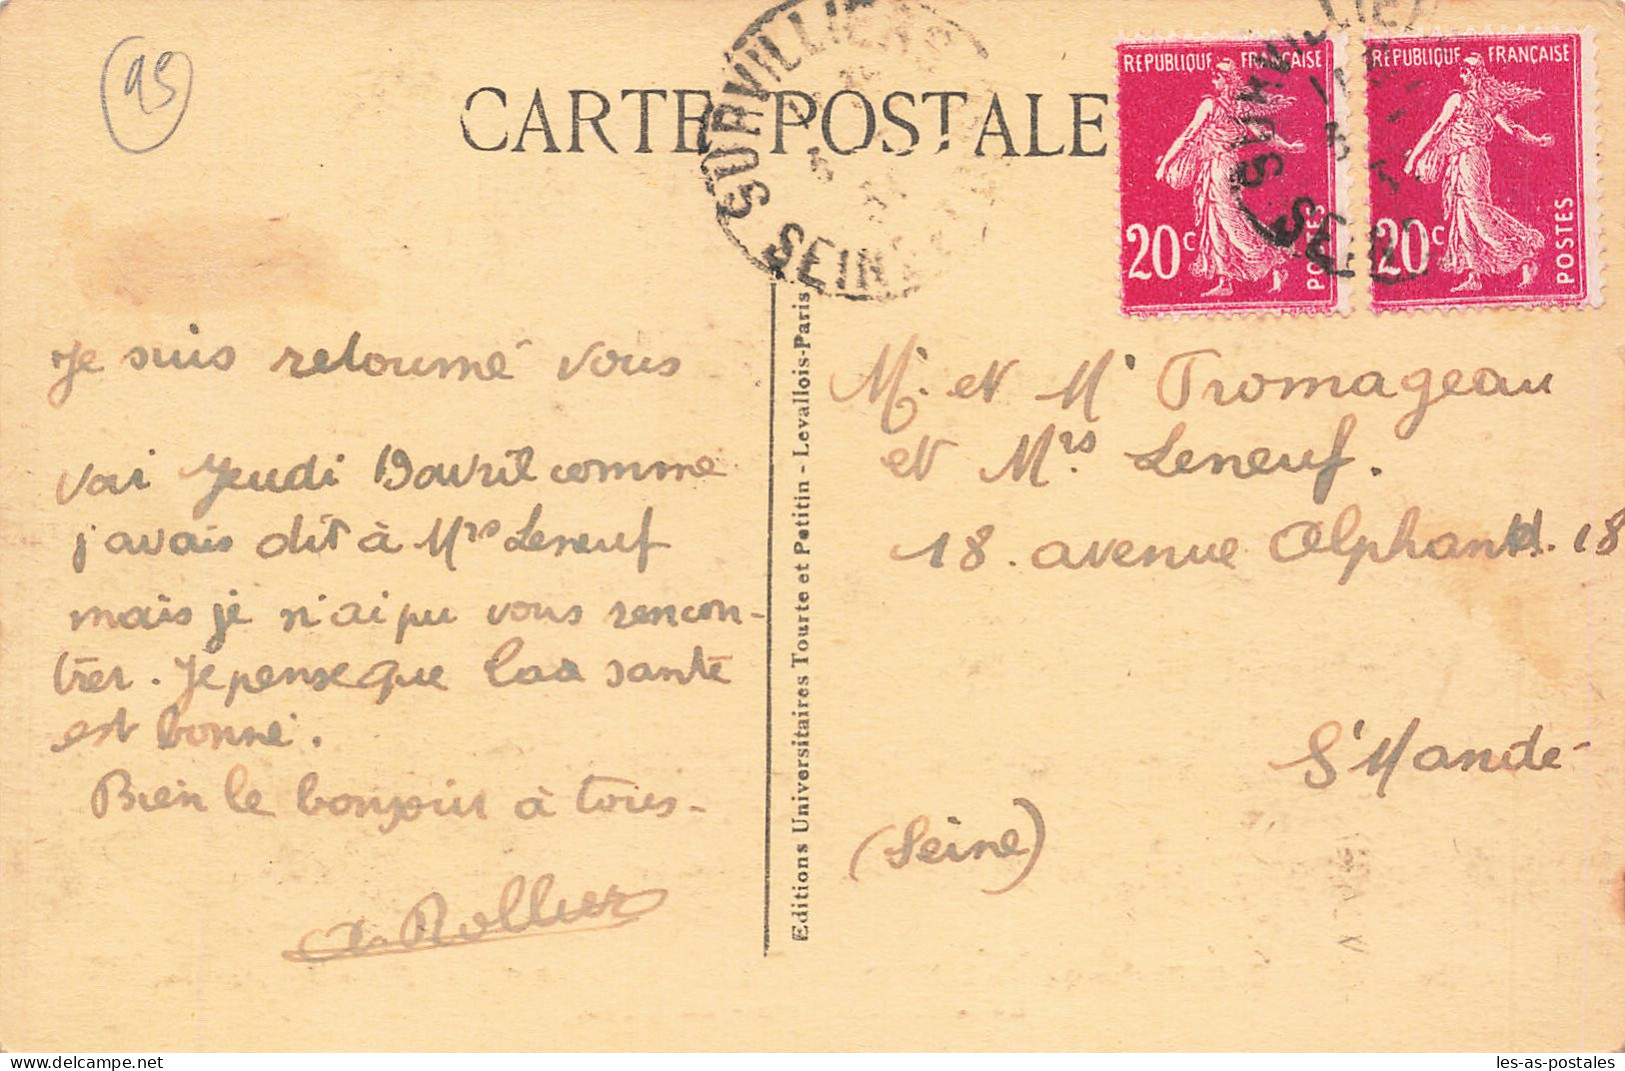 95
CARTE POSTALE
SURVILLIERS
SEINE
RÉPUBLIQUE FRANÇAISE
20c
POSTES
RÉPUBLIQUE FRANÇAISE
20c
POSTES
SURVILLIERS
SEINE
Je suis retourné vous
voir Jeudi 19 avril comme
j'avais dit à Mrs Leneuf
mais je n'ai pu vous rencon-
trer. Je pense que la santé
est bonne.
Bien le bonjour à tous-
Rollier
Editions Universitaires Tourte et Petitin - Levallois-Paris
Mr. et Mr Tromageau
et Mrs. Leneuf.
18. avenue Alphand. 18
St Mandé-
(Seine)
delcampe.net
les-as-postales